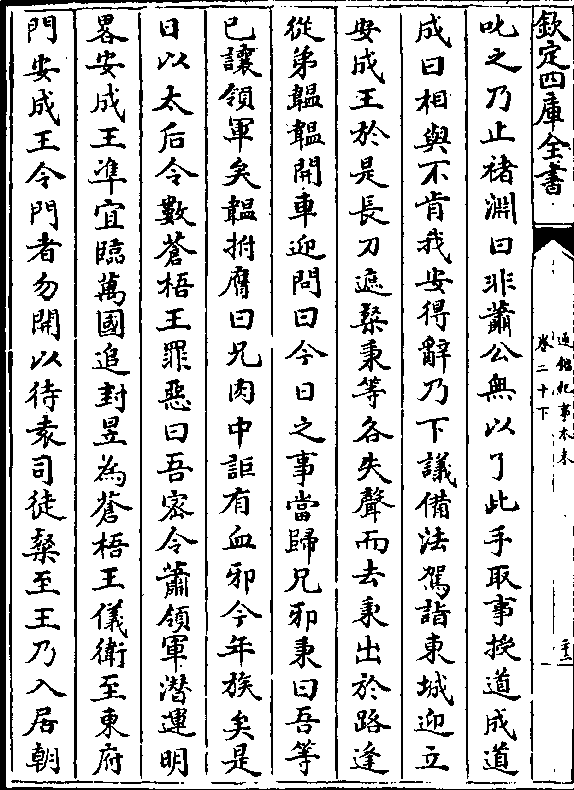 欽定四庫全書
通鑑紀事本末
卷二十下
叱之乃止褚淵曰非蕭公無以了此手取事授道成道
成曰相與不肯我安得辭乃下議備法駕詣東城迎立
安成王於是長刀遮粲秉等各失聲而去秉出於路逢
從弟韞韞開車迎問曰今日之事當歸兄邪秉曰吾等
已讓領軍矣韞拊膺曰兄肉中詎有血邪今年族矣是
日以太后令數蒼梧王罪惡曰吾密令蕭領軍潛運明
畧安成王凖宜臨萬國追封昱為蒼梧王儀衛至東府
門安成王令門者勿開以待袁司徒粲至王乃入居朝